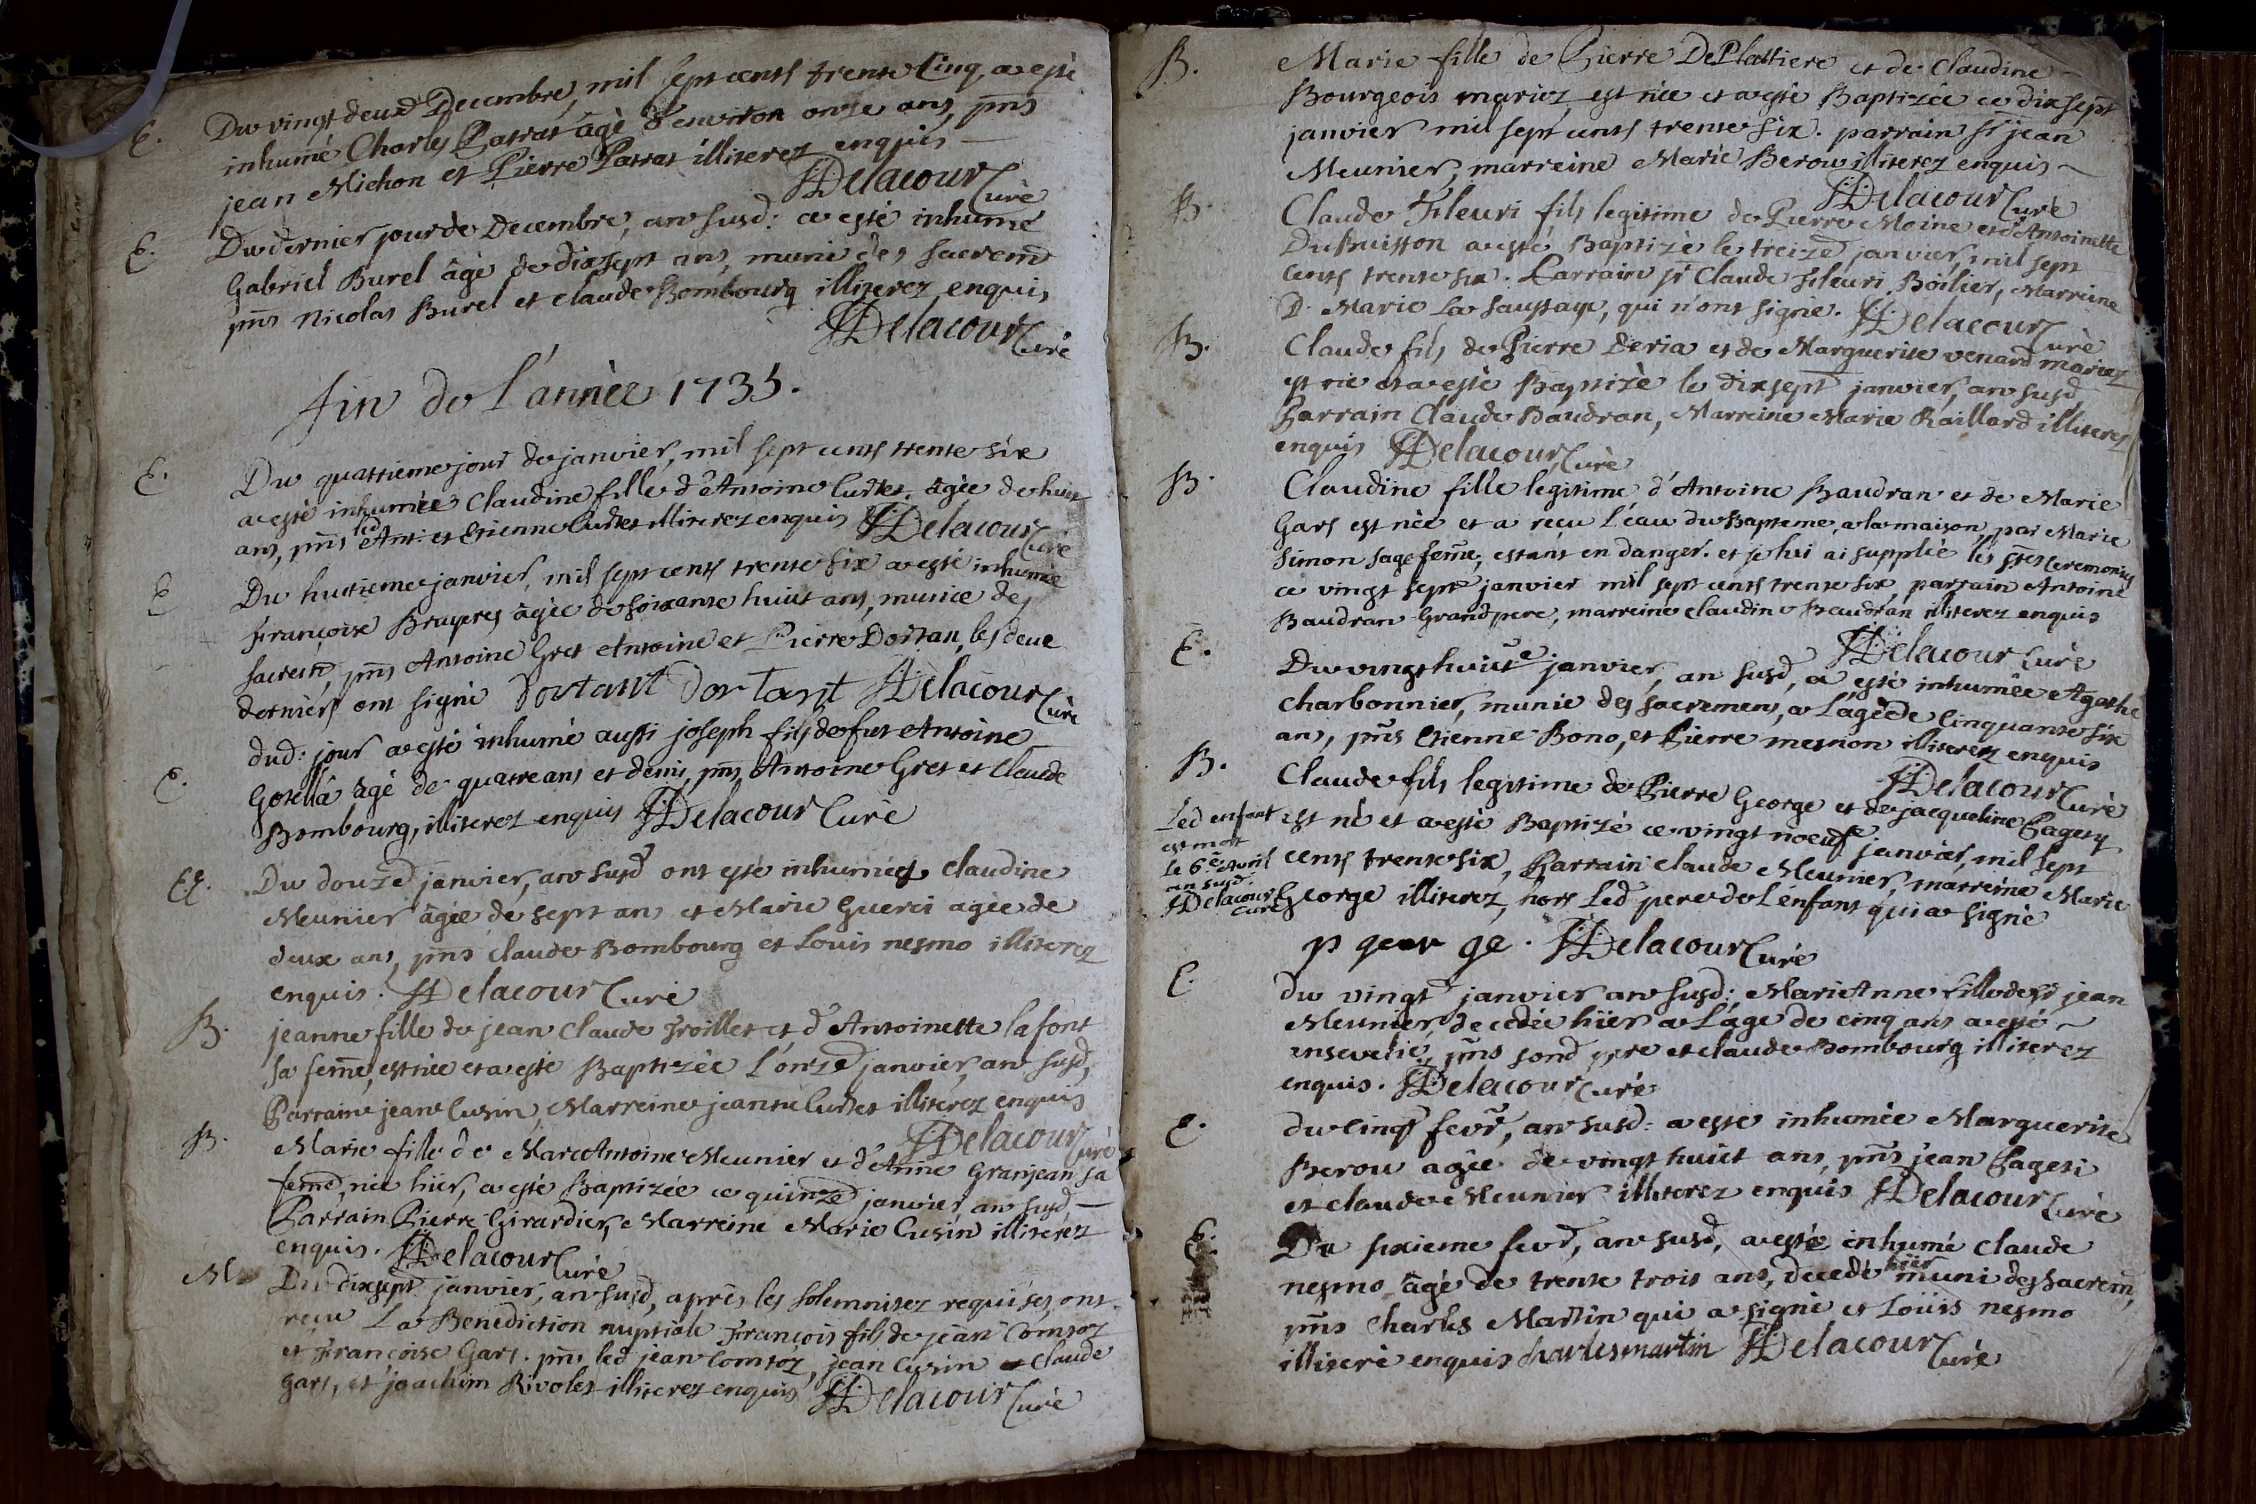 E. Du vingt deux Decembre, mil sept cents trente cinq, a esté
inhumé Charles Patrat âgé d'environ onze ans, pñs
jean Michon et Pierre Patrat illiterez enquis
HDelacour Curé
E. Du dernier jour de Decembre, an susd: a esté inhumé
Gabriel Burel âgé de dix sept ans, muni des sacrem
pñs Nicolas Burel et claude Bombourg illiterez enquis
HDelacour Curé
fin de L'année 1735.
E. Du quattrieme jour de janvier, mil sept cents trente six
a esté inhumée Claudine fille d'Antoine Curtet, âgée de huit
ans, pñs led Ant: et Etienne Curtet illiterez enquis HDelacour Curé
E Du huitieme janvier, mil sept cents trente six a esté inhumée
françoise Bruyres âgée de soixante huit ans, munie des
sacrem, pñs Antoine Gret Antoine et Pierre Dortan, les deux
derniers ont signé Dortant Dortant HDelacour Curé
E. dud: jour a esté inhumé aussi joseph fils de fut Antoine
Gotella âgé de quatre ans et demi, pñs Antoine Gret et Claude
Bombourg, illiterez enquis HDelacour Curé
EE. Du douze janvier, an susd ont esté inhumées Claudine
Meunier âgée de sept ans et Marie Guerci agée de
deux ans, pñs claude Bombourg et Louis nesmo illiterez
enquis. HDelacour Curé
B. jeanne fille de jean Claude Froillet et d'Antoinette lafont
sa feme, est née et a esté Baptizée L'onze janvier, an susd,
Parrain jean Cusin, Marreine jeanne Curtet illiterez enquis
HDelacour Curé
B. Marie fille de Marc Antoine Meunier et d'Anne Granjean sa
feme, née hier, a esté Baptizée ce quinze janvier an susd,
Parrain Pierre Girardier, Marreine Marie Cusin illiterez
enquis. HDelacour Curé
M Du dixsept janvier, an susd, aprés les solemnitez requises, ont
reçu La Benediction nuptiale François fils de jean Comtoz
et Françoise Gars. pñs led jean Comtoz, jean Cusin et Claude
Gars, et joachim Rivolet illiterez enquis HDelacour Curé
B. Marie fille de Pierre DePlattiere et de Claudine
Bourgeois mariez est née et a esté Baptizée ce dix sept
janvier mil sept cents trente six. parrain sr jean
Meunier, marreine Marie Berou illiterez enquis
HDelacour Curé
B. Claude Fleuri fils legitime de Pierre Moine et d'Antoinette
DuBuisson a esté Baptizé le treize janvier, mil sept
cents trente six. Parrain sr Claude Fleuri Boilier, Marreine
D. Marie La Saussaye, qui n'ont signé. HDelacour Curé
B. Claude fils de Pierre Deria et de Marguerite venard mariez
est né et a esté Baptizé le dixsept janvier, an susd
Parrain Claude Baudran, Marreine Marie Raillard illiterez
enquis HDelacour Curé
B. Claudine fille legitime d'Antoine Baudran et de Marie
Gars est née et a reçu L'eau du Bapteme, a la maison, par Marie
Simon sage feme, estant en danger. et je lui ai supplié les stes ceremonies
ce vingt sept janvier mil sept cents trente six, parrain Antoine
Baudran Grand pere, marreine Claudine Baudran illiterez enquis
HDelacour Curé
E. Du vingt huit e janvier, an susd, a esté inhumée Agathe
charbonnier, munie des sacremens, a L'age de Cinquante six
an, pñs Etienne Bono, et Pierre mesnon illiterez enquis
HDelacour Curé
B. Claude fils legitime de Pierre George et de jacqueline Pagety
est né et a esté Baptizé ce vingt noeufe janvier, mil sept
cents trente six, Parrain Claude Meunier, marreine Marie
George illiterez, hors Led pere de L'enfant qui a signé
Led enfant
est mort
le 6e avril
an susd.
HDelacour
Curé
p geor ge. HDelacour Curé
E. du vingt janvier an susd:, Marie Anne fille de sr jean
Meunier, decedée hier a L'age de cinq ans a esté
ensevelie, pñs sond pere et claude Bombourg illiterez
enquis. HDelacour Curé
E. du Cinq fevr, an susd: a esté inhumée Marguerite
Berou agée de vingt huit ans, pñs jean Pageti
et claude Meunier illiterez enquis HDelacour Curé
E. Du sixieme fevr, an susd, a esté inhumé claude
nesmo âgé de trente trois ans, decedé hier muni des sacrem,
pñs Charles Martin qui a signé et Loüis nesmo
illiteré enquis charles martin HDelacour Curé